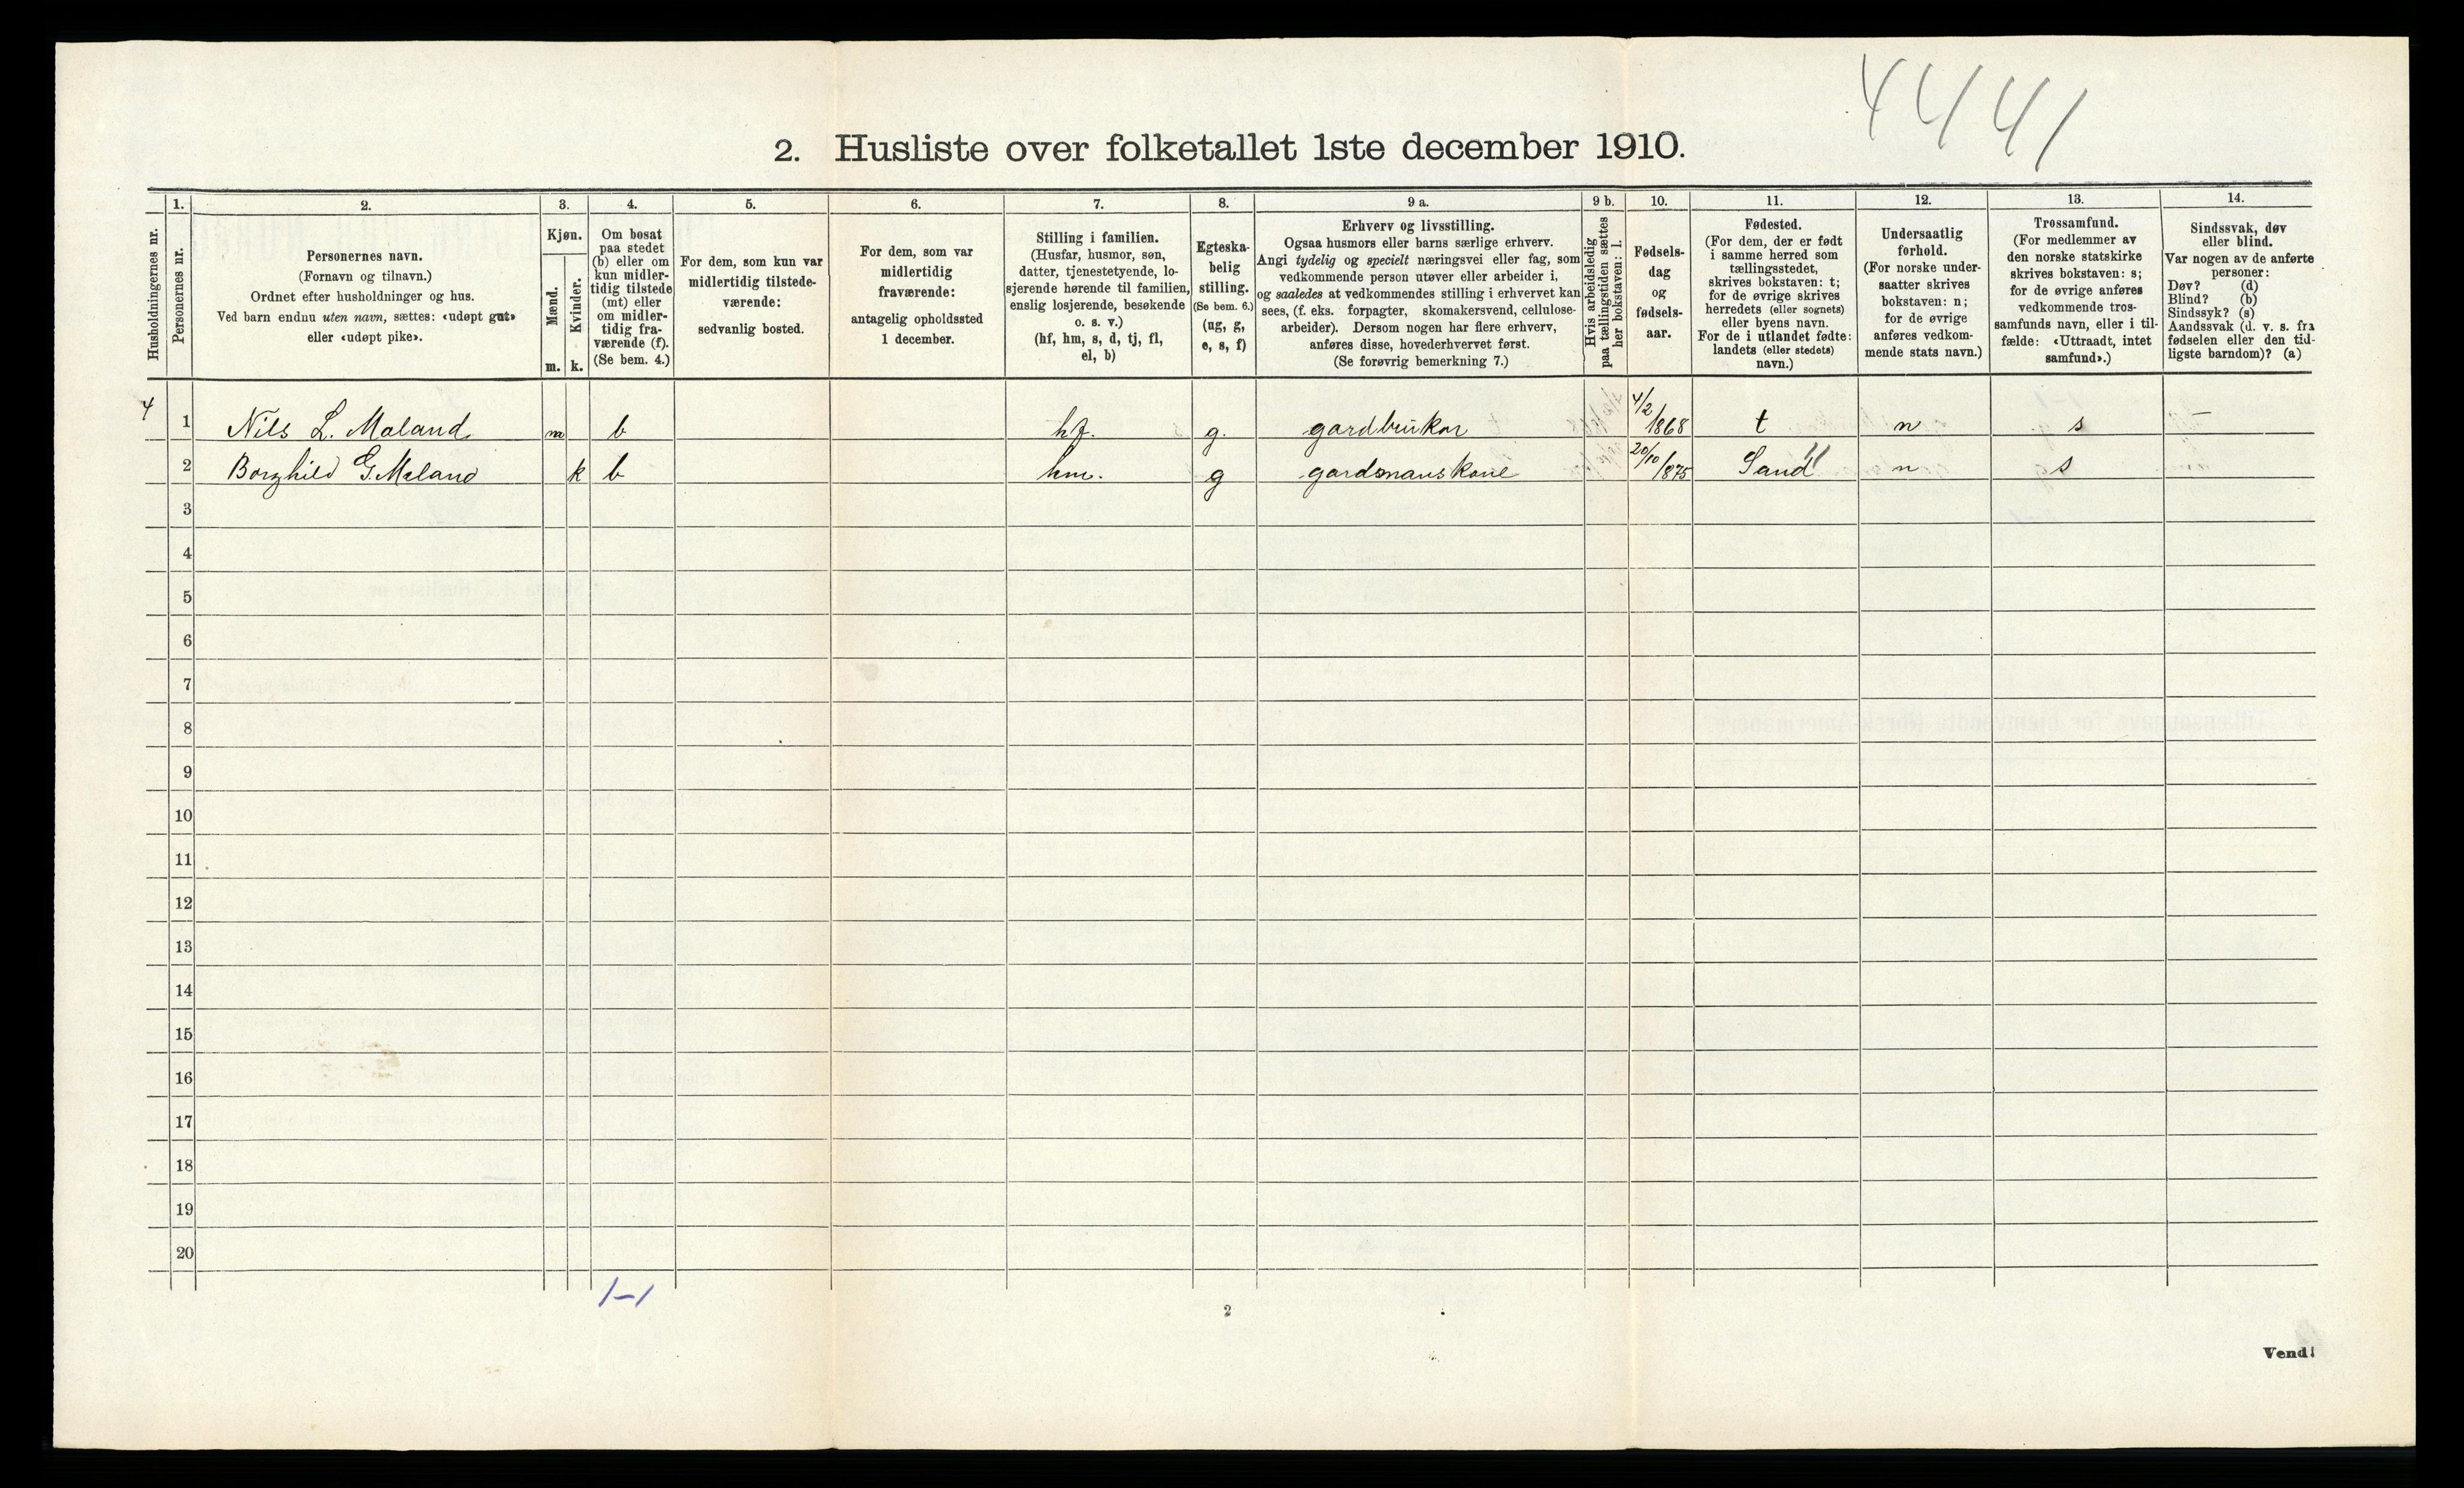 4441
2. Husliste over folketallet 1ste december 1910.
Husholdningernes nr.
1. Personernes nr.
2. Personernes navn. (Fornavn og tilnavn.) Ordnet efter husholdninger og hus. Ved barn endnu uten navn, sættes: «udøpt gut» eller «udøpt pike».
3. Kjøn. Mænd. m. Kvinder. k.
4. Om bosat paa stedet (b) eller om kun midlertidig tilstede (mt) eller om midlertidig fraværende (f). (Se bem. 4.)
5. For dem, som kun var midlertidig tilstedeværende: sedvanlig bosted.
6. For dem, som var midlertidig fraværende: antagelig opholdssted 1 december.
7. Stilling i familien. (Husfar, husmor, søn, datter, tjenestetyende, losjerende hørende til familien, enslig losjerende, besøkende o. s. v.) (hf, hm, s, d, tj, fl, el, b)
8. Egteskabelig stilling. (Se bem. 6.) (ug, g, e, s, f)
9 a. Erhverv og livsstilling. Ogsaa husmors eller barns særlige erhverv. Angi tydelig og specielt næringsvei eller fag, som vedkommende person utøver eller arbeider i, og saaledes at vedkommendes stilling i erhvervet kan sees, (f. eks. forpagter, skomakersvend, cellulosearbeider). Dersom nogen har flere erhverv, anføres disse, hovederhvervet først. (Se forøvrig bemerkning 7.)
9 b. Hvis arbeidsledig paa tællingstiden sættes her bokstaven: l.
10. Fødselsdag og fødselsaar.
11. Fødested. (For dem, der er født i samme herred som tællingsstedet, skrives bokstaven: t; for de øvrige skrives herredets (eller sognets) eller byens navn. For de i utlandet fødte: landets (eller stedets) navn.)
12. Undersaatlig forhold. (For norske undersaatter skrives bokstaven: n; for de øvrige anføres vedkommende stats navn.)
13. Trossamfund. (For medlemmer av den norske statskirke skrives bokstaven: s; for de øvrige anføres vedkommende trossamfunds navn, eller i tilfælde: «Uttraadt, intet samfund».)
14. Sindssvak, døv eller blind. Var nogen av de anførte personer: Døv? (d) Blind? (b) Sindssyk? (s) Aandssvak (d. v. s. fra fødselen eller den tidligste barndom)? (a)
4 1 Nils L. Maland m b hf. g. gardbrukar 4/2 1868 t n s —
2 Borghild G. Maland k b hm. g gardmanskone 20/10 1875 Sand 11 n s
3
4
5
6
7
8
9
10
11
12
13
14
15
16
17
18
19
20
1-1
2
Vend!